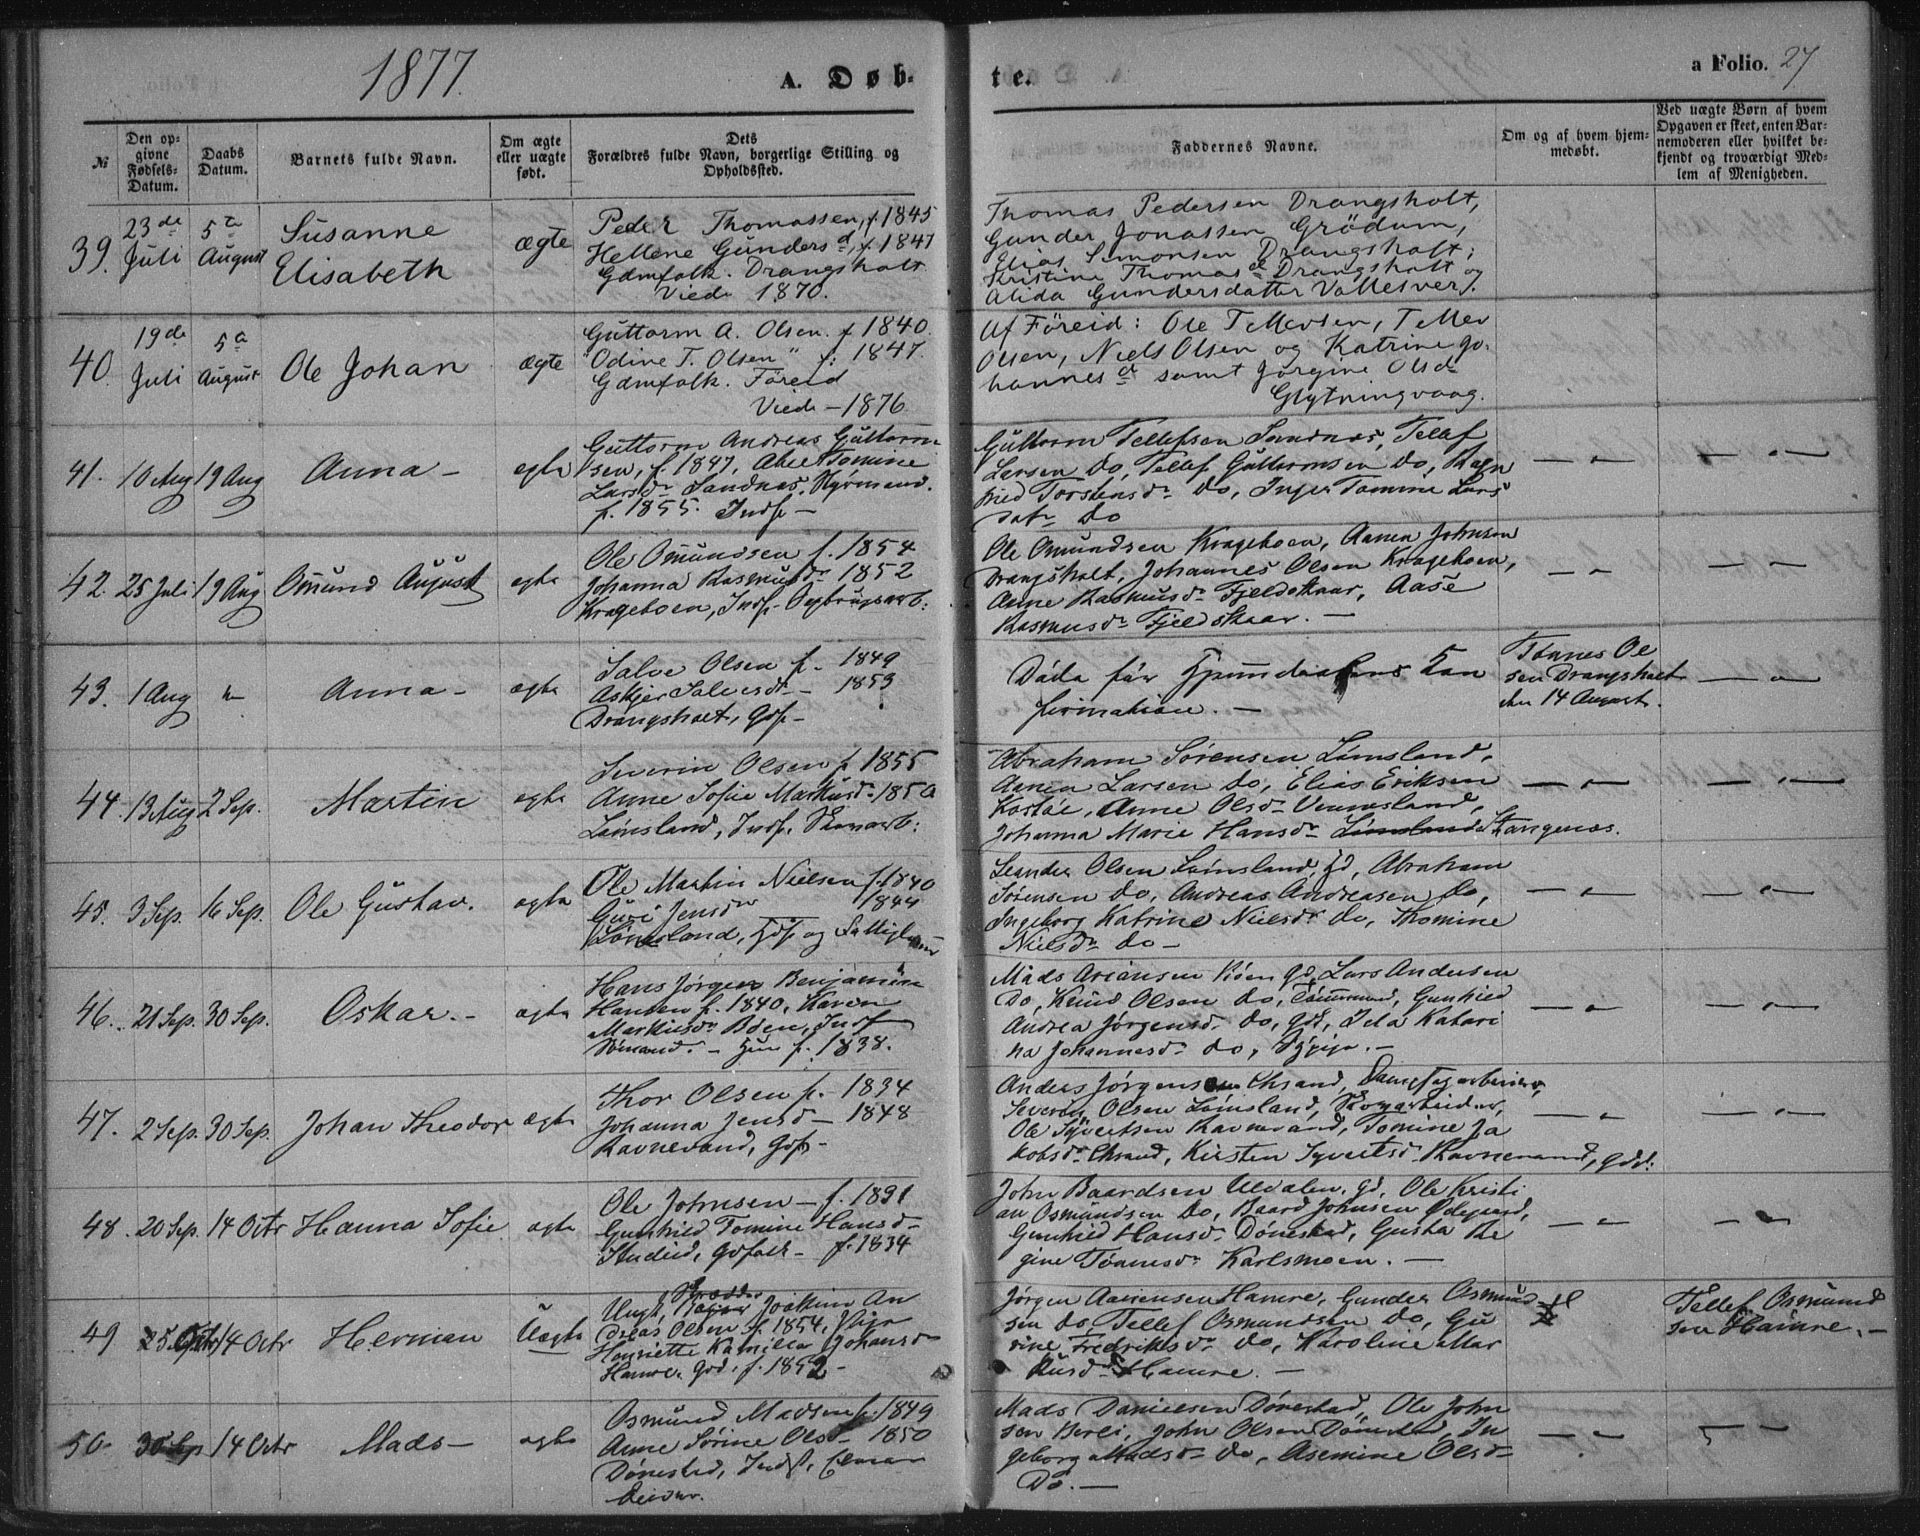 1877.
A. Døb-
te.
a Folio. 27
№
Den op-
givne
Fødsels-
Datum.
Daabs
Datum.
Barnets fulde Navn.
Om ægte
eller uægte
født.
Dets
Forældres fulde Navn, borgerlige Stilling og
Opholdssted.
Faddernes Navne.
Om og af hvem hjem-
medøbt.
Ved uægte Børn af hvem
Opgaven er skeet, enten Bar-
nemoderen eller hvilket be-
kjendt og troværdigt Med-
lem af Menigheden.
39.
23de
Juli
5te
August
Susanne
Elisabeth
ægte
Peder Thomassen, f. 1845
Hellene Gundersd, f. 1847
Gdmfolk. Drangsholt
Viede 1870.
Thomas Pedersen Drangsholt,
Gunder Jonassen Grödum,
Elias Simonsen Drangsholt;
Kristine Thomasd Drangsholt og
Alida Gundersdatter Vollesver.
40.
19de
Juli
5te
August
Ole Johan
ægte
Guttorm A. Olsen. f 1840.
"Odine T. Olsen" f: 1847.
Gdmfolk. Föreid
Viede – 1876
Af Föreid: Ole Tellevsen, Tellev
Olsen, Niels Olsen og Katrine Jo-
hannesd samt Jörgine Olsd
41.
10 Aug
19 Aug
Anna –
egte
Guttorm Andreas Guttorm
sen, f. 1847, Tomine
Larsdr Sandnes,
f. 1855. Indf –
Guttorm Tellefsen Sandnes, Tellef
Larsen Do, Tellef Guttormsen Do, Ragn
hild Torstensdr Do, Inger Tomine Lars
datr Do
42.
25 Juli
19 Aug
Omund August
egte
Ole Omundsen f. 1854
Johanna Rasmusdr 1852
Krageboen, Indf.
Ole Omundsen Krageboen, Aanen Johnsen
Drangsholt, Johannes Olsen Krageboen,
Anne Rasmusdr Fjeldskaar, Aase
Rasmusdr Fjeldskaar. –
43.
1 Aug
"
Anna –
egte
Salve Olsen f. – 1849
Salvesdr – 1853
Drangsholt, Gdf –
Döde för Kon
firmation. –
Tønnes Ol
sen Drangsholt
den 14 August.
44.
13 Aug
2 Sep.
Martin
egte
Severin Olsen f 1855
Anne Sofie Markusdr 1850
Lømsland, Indf. Skovarb:
Abraham Sørensen Lømsland,
Aanen Larsen Do, Elias Eriksen
Kostöe, Anne Olsdr Vennesland,
Johanna Marie Hansdr Lømsland Stangenes.
45.
3 Sep.
16 Sep.
Ole Gustav.
egte
Ole Martin Nielsen f. 1840
Guri Jensdr 1844
Lømsland, Hdf og
Leander Olsen Lømsland, gd, Abraham
Sørensen Do, Andreas Andreasen Do,
Ingeborg Katrine Nielsdr Do, Thomine
Nielsdr Do –
46.
21 Sep.
30 Sep.
Oskar. –
egte
Hans Jørgen Benjamin
Hansen f. 1840, Karen
Markusdr Bøen, Indf
Sømand. – Hun f. 1838.
Mads Ariansen Bøen gd, Lars Andersen
Do, Knud Olsen Do, Tømmermd, Gunhild
Andrea Jørgensd. Do, gdf, Ida Katari
na Johannesdr Do, Pige. –
47.
2 Sep.
30 Sep.
Johan Theodor
ægte
Thor Olsen f. – 1834
Johanna Jensd – 1848
Ravnevand, Gdf –
Anders Jørgensen Chrsand,
Severin Olsen Lømsland, Skovarbeider,
Ole Syvertsen Ravnevand, Tomine Ja
kobsdr Chrsand, Kirsten Syvertsdr Ravnevand, gdd.
48.
20 Sep.
14 Octr
Hanna Sofie
egte
Ole Johnsen – f. 1831
Gunhild Tomine Hansd –
Studeid, Gdfolk – f. 1834
John Baardsen Uldalen, gd, Ole Kristi
an Osmundsen Do, Baard Johnsen Ødegaard,
Gunhild Hansdr Dønestad, Gusta Re
gine Tønnesdr Karlsmoen. –
49
14 Octr
Herman
Uægte
Ungk. Joakim An
dreas Olsen f. 1854, Pige
Henriette Kamilla Johansd
Hamre. gdd. f. 1852 –
Jørgen Aanensen Hamre, Gunder Osmund
sen Do, Tellef Osmundsen Do, Gu
rine Fredriksdr Do, Karoline Mar
kusdr Hamre. –
Tellef Osmund
sen Hamre. –
50.
30 Sep
14 Octr
Mads –
egte
Osmund Madsen f. 1849
Anne Sørine Olsd – 1850
Dønestad, Indst,
Mads Danielsen Dønestad, Ole John
sen Do, John Olsen Dønestad, In
geborg Madsdr Do, Asemine Olsd –
Do. –